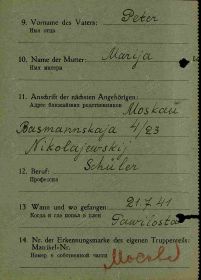 9. Vorname des Vaters: Peter
Имя отца
10. Name der Mutter: Marija
Имя матери
11. Anschrift der nächsten Angehörigen:
Адрес ближайших родственников
Moskau
Basmannskaja 4/23
Nikolajewskij
Schüler
12. Beruf:
Профессия
13. Wann und wo gefangen: 21.7.41
Когда и где попал в плен
Pawilosta
14. Nr. der Erkennungsmarke des eigenen Truppenteils:
Matrikel-Nr.
Номер в собственной части